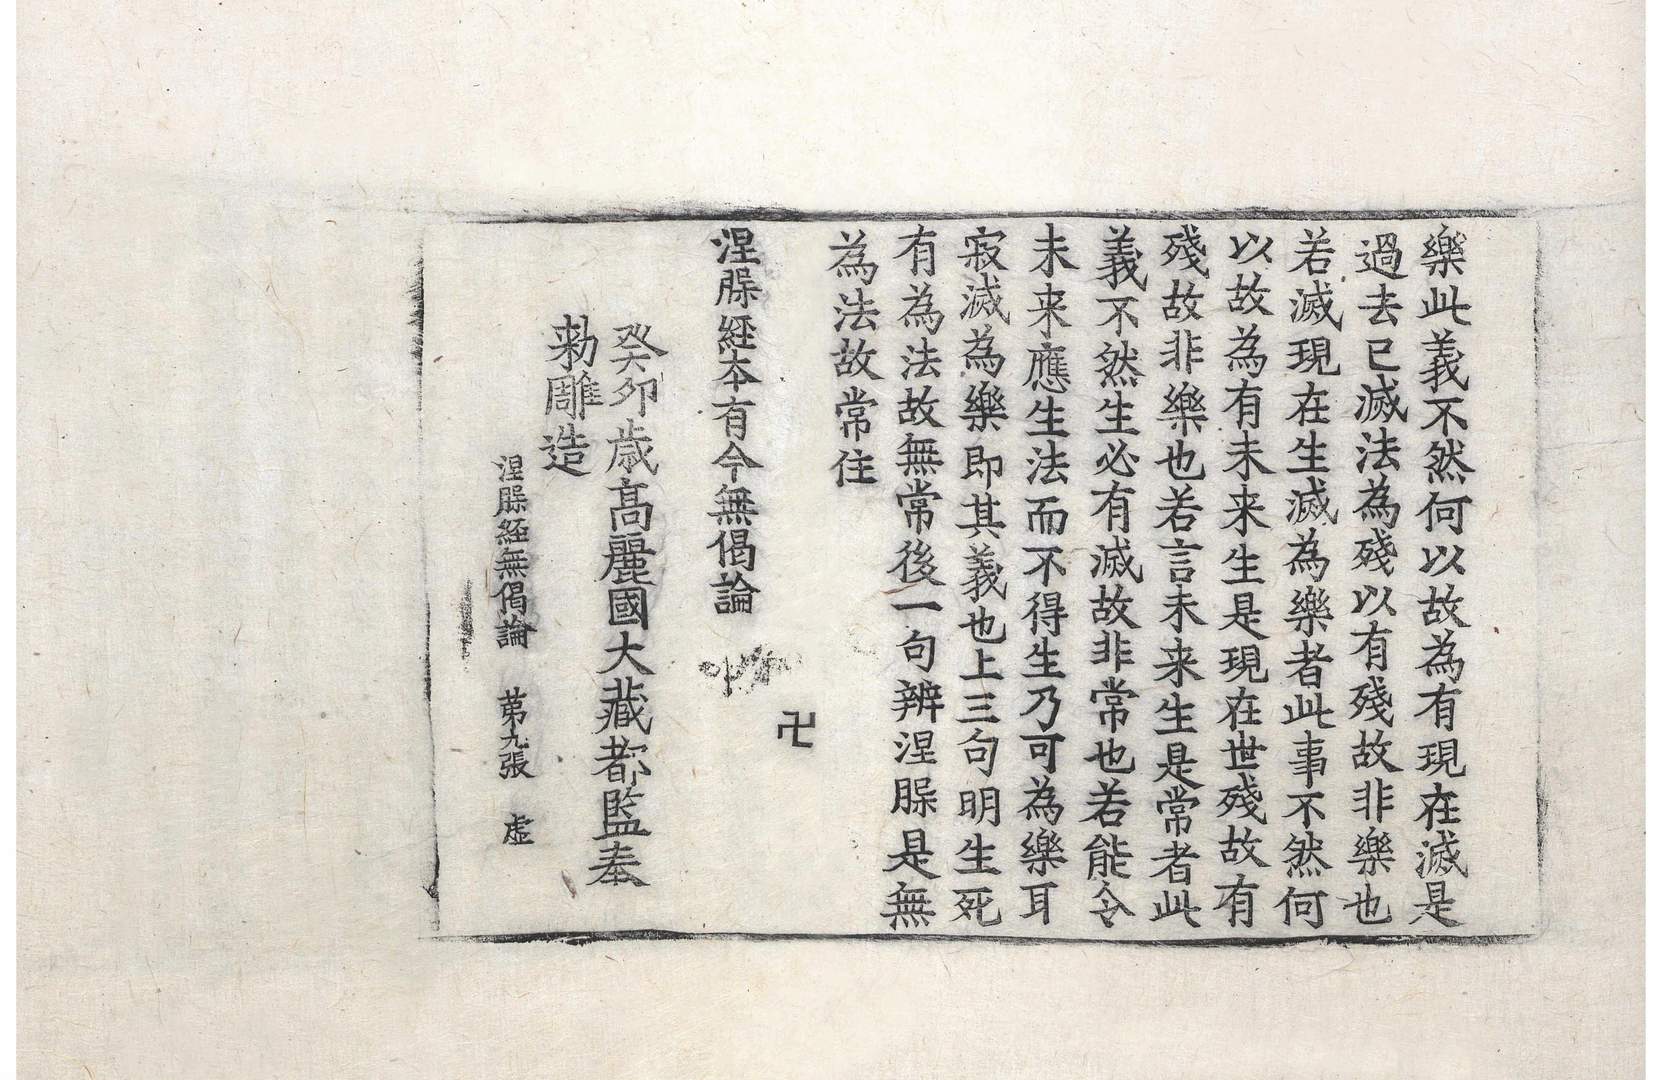 樂此義不然何以故為有現在滅是
過去已滅法為殘以有殘故非樂也
若滅現在生滅為樂者此事不然何
以故為有未来生是現在世殘故有
殘故非樂也若言未来生是常者此
義不然生必有滅故非常也若能令
未来應生法而不得生乃可為樂耳
寂滅為樂即其義也上三句明生死
有為法故無常後一句辨涅槃是無
為法故常住
卍
涅槃經本有今無偈論
癸卯歲高麗國大藏都監奉
勅雕造
涅槃經無偈論 第九張 虛